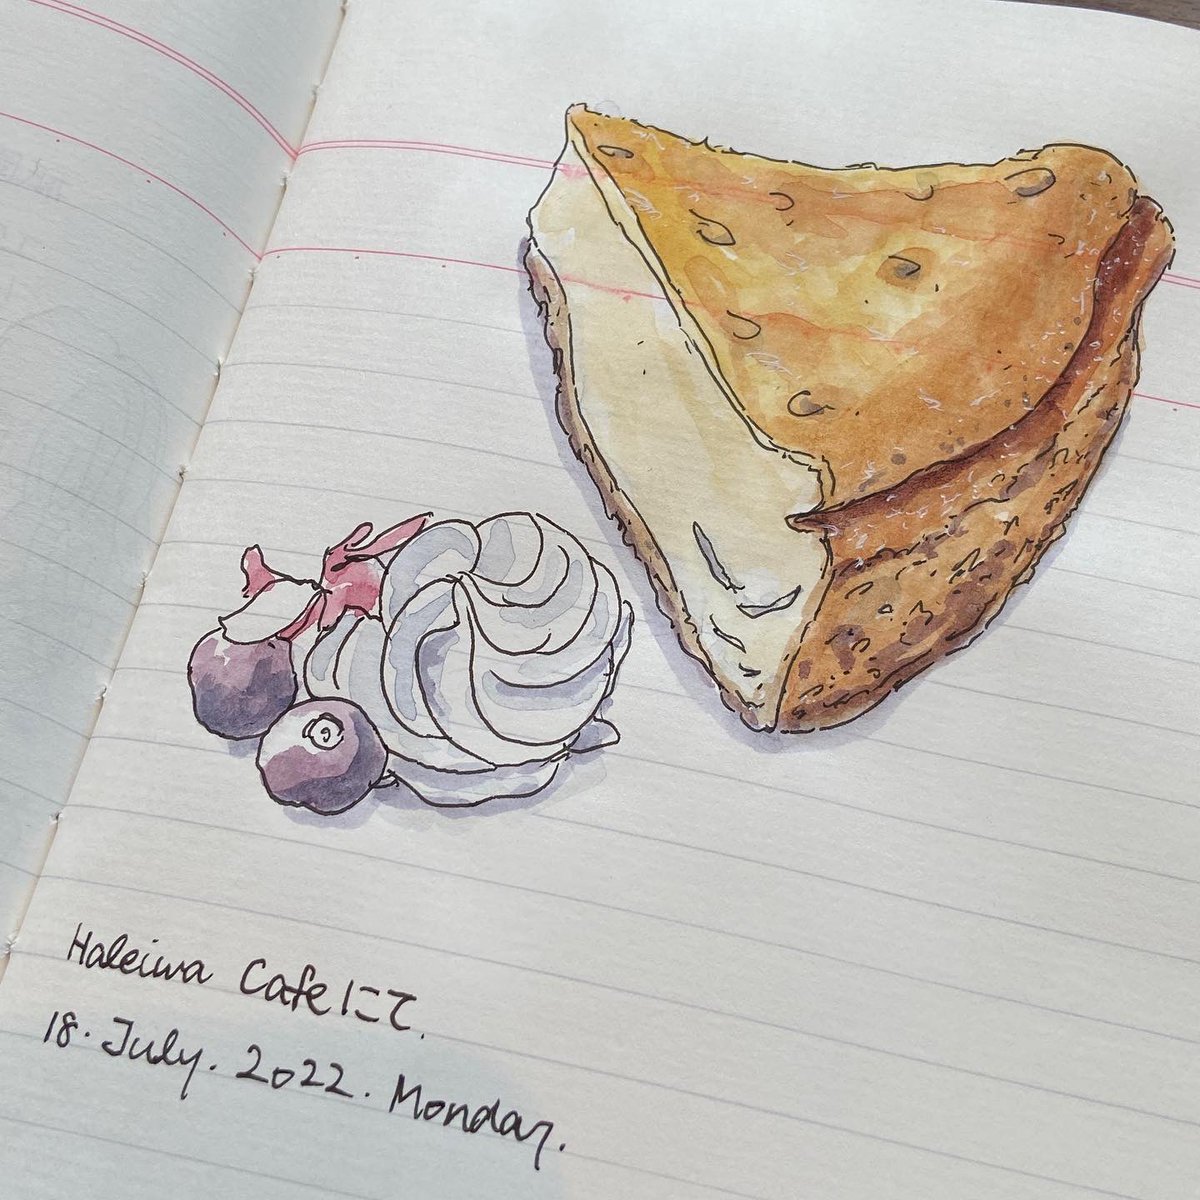 Haleiwa Cafeにて.
18. July. 2022. Monday.